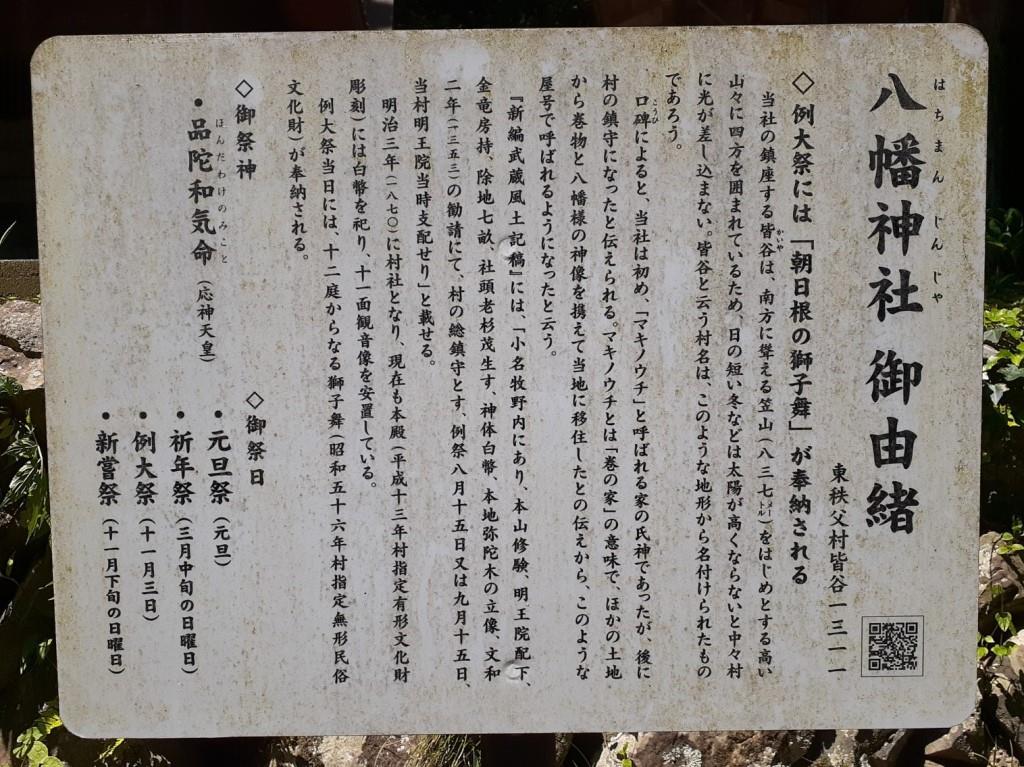 はちまんじんじゃ
八幡神社 御由緒
東秩父村皆谷一三一一
◇例大祭には「朝日根の獅子舞」が奉納される
当社の鎮座する皆谷は、南方に聳える笠山(八三七㍍)をはじめとする高い
かいや
山々に四方を囲まれているため、日の短い冬などは太陽が高くならないと中々村
に光が差し込まない。皆谷と云う村名は、このような地形から名付けられたもの
であろう。
口碑によると、当社は初め、「マキノウチ」と呼ばれる家の氏神であったが、後に
こうひ
村の鎮守になったと伝えられる。マキノウチとは「巻の家」の意味で、ほかの土地
から巻物と八幡様の神像を携えて当地に移住したとの伝えから、このような
屋号で呼ばれるようになったと云う。
『新編武蔵風土記稿』には、「小名牧野内にあり、本山修験、明王院配下、
金竜房持、除地七畝、社頭老杉茂生す、神体白幣、本地弥陀木の立像、文和
二年(一三五三)の勧請にて、村の総鎮守とす、例祭八月十五日又は九月十五日、
当村明王院当時支配せり」と載せる。
明治三年(一八七〇)に村社となり、現在も本殿(平成十三年村指定有形文化財
彫刻)には白幣を祀り、十一面観音像を安置している。
例大祭当日には、十二庭からなる獅子舞(昭和五十六年村指定無形民俗
文化財)が奉納される。
◇御祭神
ほんだわけのみこと
・品陀和気命(応神天皇)
◇御祭日
・元旦祭(元旦)
・祈年祭(三月中旬の日曜日)
・例大祭(十一月三日)
・新嘗祭(十一月下旬の日曜日)